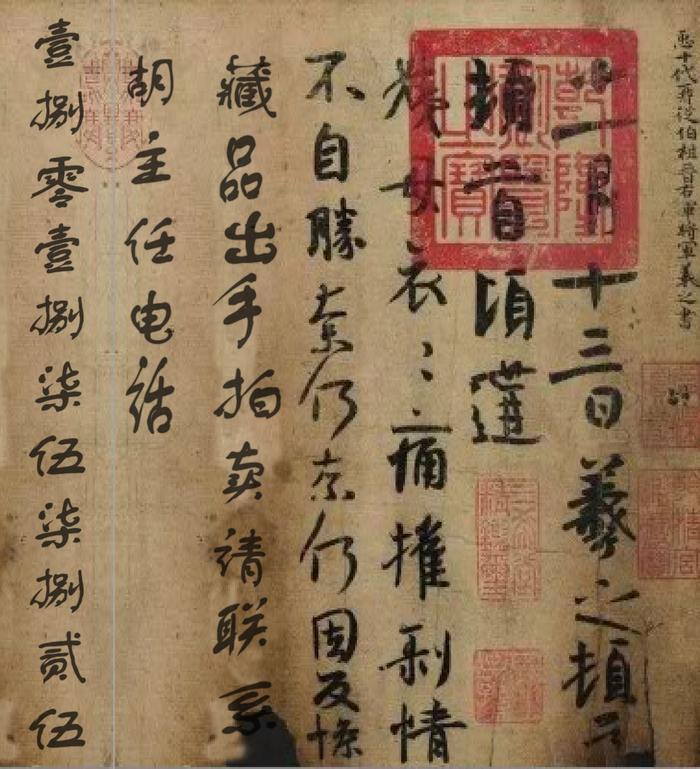 臣十代再從伯祖晉右軍將軍羲之書
乾隆御覽之寶
十一月十三日羲之頓首
頓首頃遘
姨母哀〻痛摧剝情
不自勝奈何奈何因反慘
藏品出手拍卖請联系
胡主任电話
壹捌零壹捌柒伍柒捌贰伍